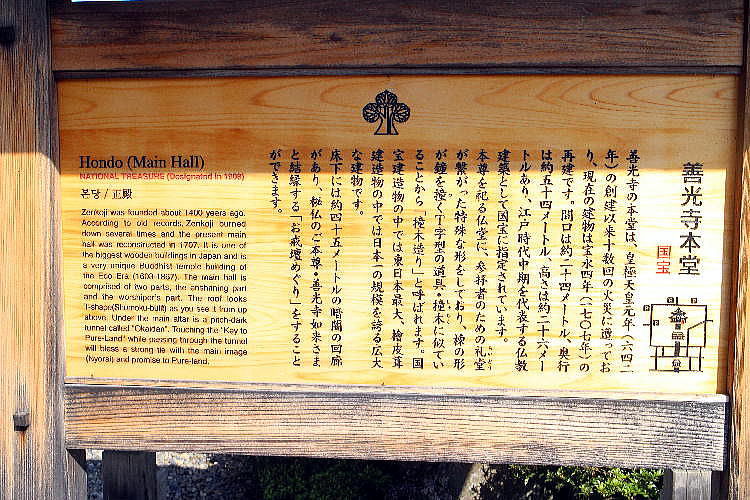 善光寺本堂
国宝
善光寺の本堂は、皇極天皇元年(六四二
年)の創建以来十数回の火災に遭ってお
り、現在の建物は宝永四年(一七〇七年)の
再建です。間口は約二十四メートル、奥行
は約五十四メートル、高さは約二十六メー
トルあり、江戸時代中期を代表する仏教
建築として国宝に指定されています。
本尊を祀る仏堂に、参拝者のための礼堂
が繋がった特殊な形をしており、棟の形
が鐘を撞くT字型の道具・撞木に似てい
ることから「撞木造り」と呼ばれます。国
宝建造物の中では東日本最大、檜皮葺
建造物の中では日本一の規模を誇る広大
な建物です。
床下には約四十五メートルの暗闇の回廊
があり、秘仏のご本尊・善光寺如来さま
と結縁する「お戒壇めぐり」をすること
ができます。
Hondo (Main Hall)
NATIONAL TREASURE (Designated in 1953)
본당 / 正殿
Zenkoji was founded about 1400 years ago.
According to old records, Zenkoji burned
down several times and the present main
hall was reconstructed in 1707. It is one of
the biggest wooden buildings in Japan and is
a very unique Buddhist temple building of
the Edo Era (1603-1867). The main hall is
comprised of two parts, the enshrining part
and the worshiper's part. The roof looks
T-shape(Shumoku-built) as you see it from up
above. Under the main altar is a pitch-dark
tunnel called "Okaidan". Touching the "Key to
Pure-Land" while passing through the tunnel
will bless a strong tie with the main image
(Nyorai) and promise to Pure-land.